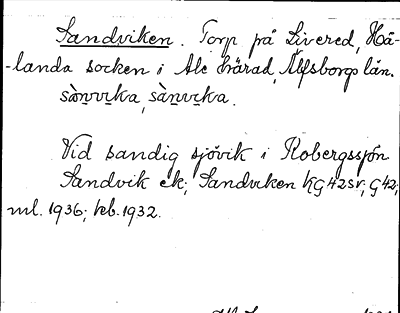 Sandviken. Torp på Livered, Hå-
-landa socken i Ale härad, Älfsborgs län.
sànvika, sànvika.
Vid sandig sjövik i Robergssjön
Sandvik ek; Sandviken KG 42 SV; G 42;
ml. 1936; kb. 1932.